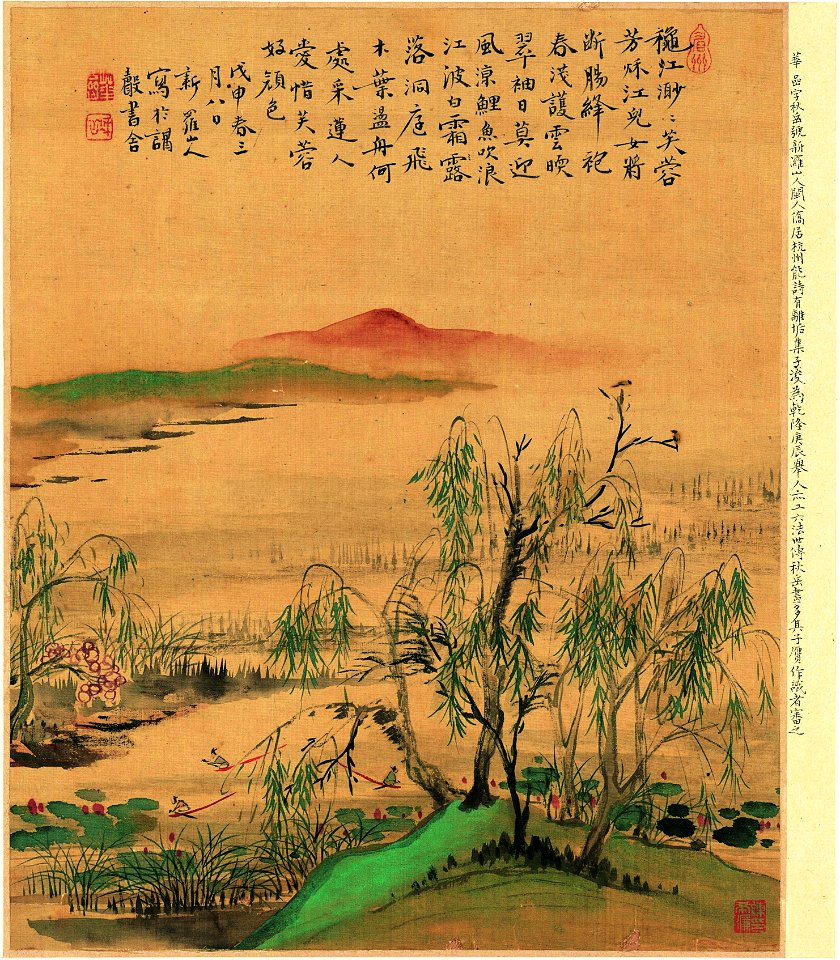 穐江渺〻芙蓉
芳秌江兒女將
断腸絳袍
春淺護雲暎
翠袖日莫迎
風涼鯉魚吹浪
江波白霜露
落洞庭飛
木葉盪舟何
處采蓮人
愛惜芙蓉
好顔色
戊申春三
月八日
新羅山人
寫於
書舍
華嵒字秋岳號新羅山人閩人僑居杭州能詩有離垢集子浚爲乾隆庚辰舉人亦工六法世傳秋岳畫多其子贋作識者審之